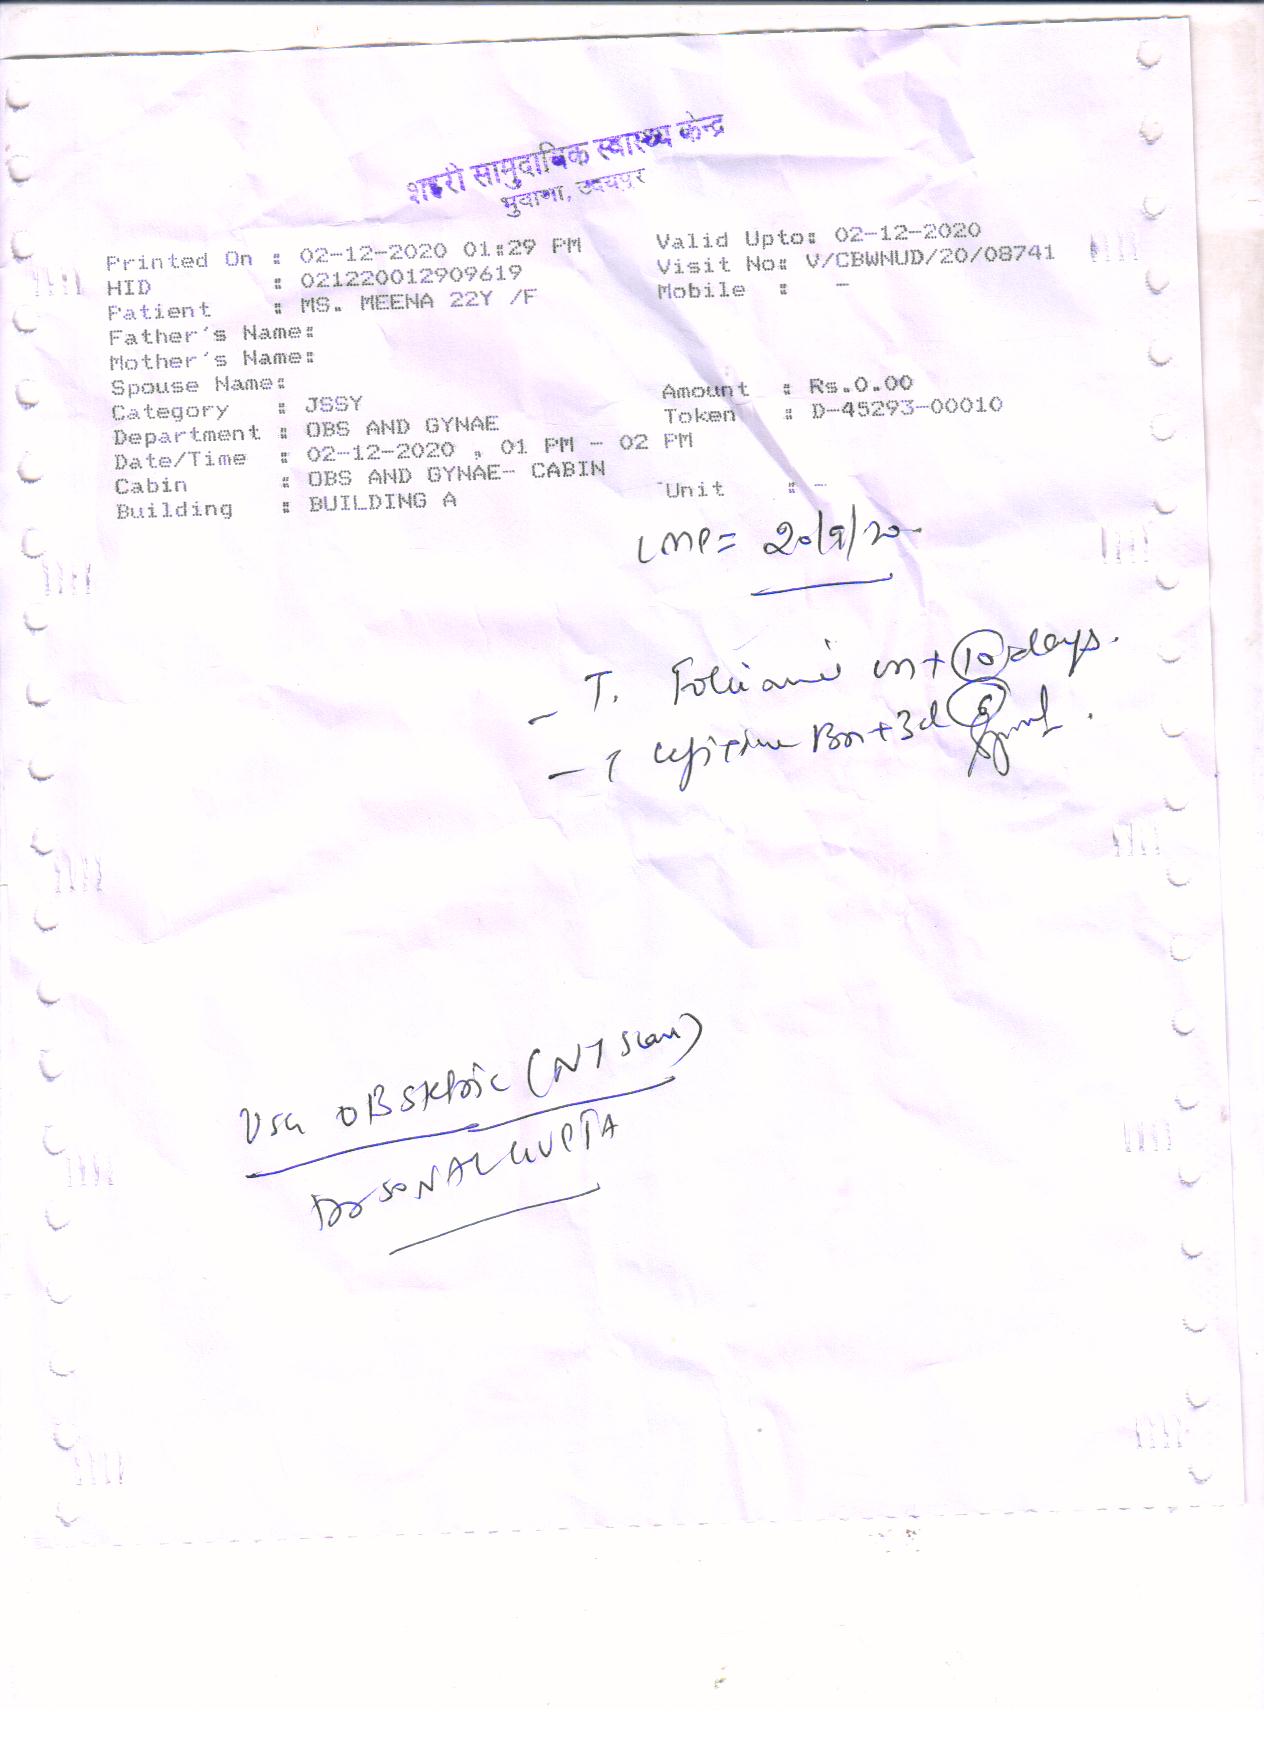 शहरी सामुदायिक स्वास्थ्य केन्द्र
भुवाणा, उदयपुर
Printed On : 02-12-2020 01:29 PM Valid Upto: 02-12-2020
HID : 021220012909619 Visit No: V/CBWNUD/20/08741
Patient : MS. MEENA 22Y /F Mobile : -
Father's Name:
Mother's Name:
Spouse Name:
Category : JSSY Amount : Rs.0.00
Department : OBS AND GYNAE Token : D-45293-00010
Date/Time : 02-12-2020 , 01 PM - 02 PM
Cabin : OBS AND GYNAE- CABIN
Building : BUILDING A Unit : -
LMP= 20/9/20
- T. 10 days.
- 3d 6
USG OBSteric (NT Scan)
Dr SONAL GUPTA